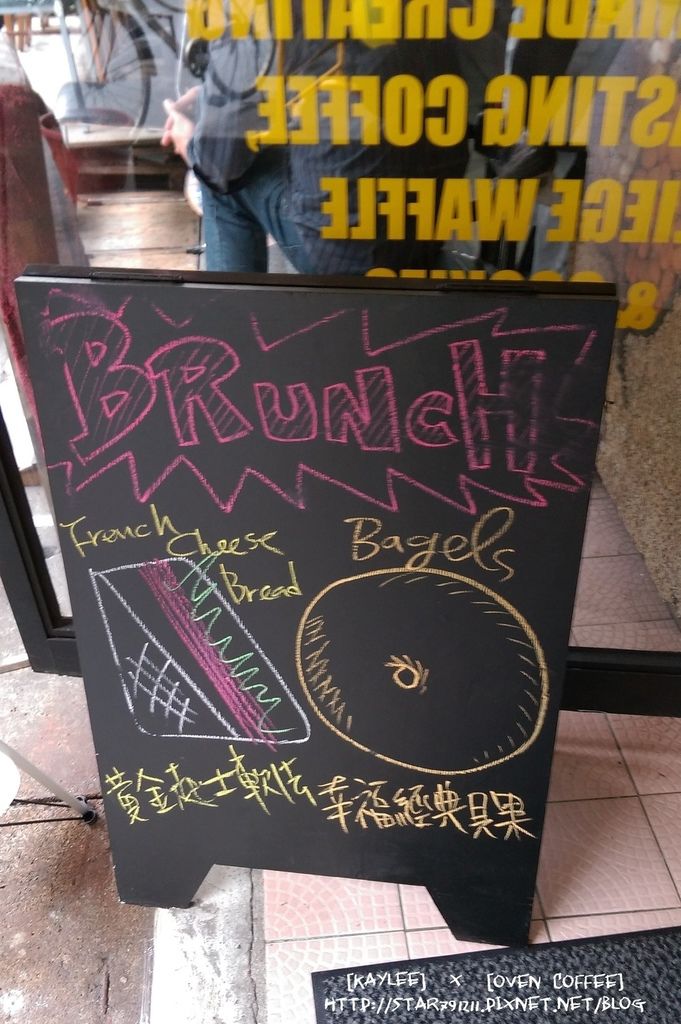 MADE CREATING
ASTING COFFEE,
LIEGE WAFFLE
&
BRUNCH
French Cheese Bread
Bagels
黃金起士軟法
幸福經典貝果
[KAYLEE] x [OVEN COFFEE]
HTTP://STAR791211.PIXNET.NET/BLOG